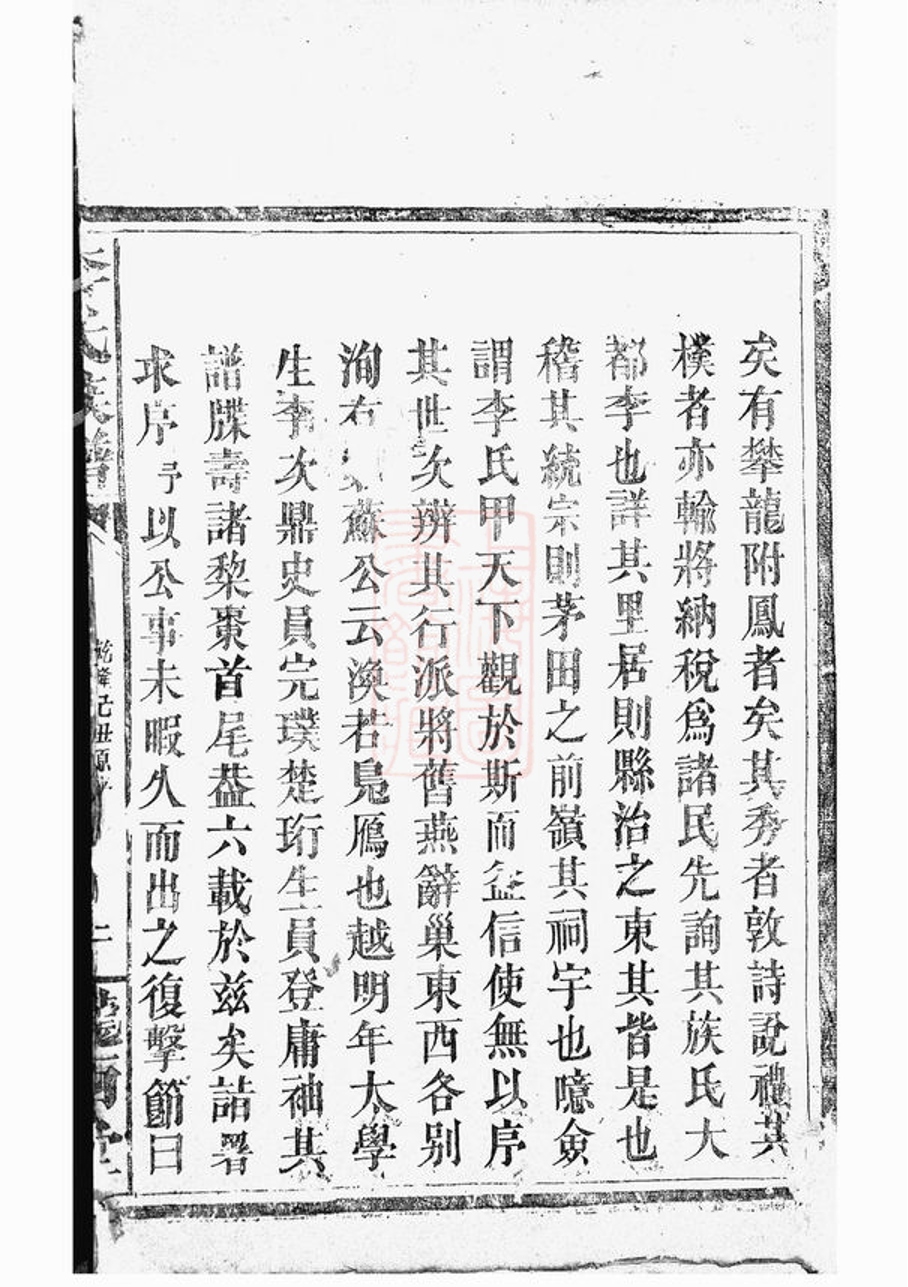 矣有攀龍附鳳者矣其秀者敦詩說禮其
樸者亦輸將納稅爲諸民先詢其族氏大
都李也詳其里居則縣治之東其皆是也
稽其統宗則茅田之前嶺其祠宇也噫僉
謂李氏甲天下觀於斯而益信使無以序
其世次辨其行派將舊燕辭巢東西各别
洵有蘇公云渙若鳧雁也越明年太學
生李次鼎史員完璞楚珩生員登庸袖其
譜牒壽諸棃棗首尾葢六載於兹矣詣署
求序予以公事未暇久而出之復擊節曰
李氏族譜
乾隆己丑原序
二